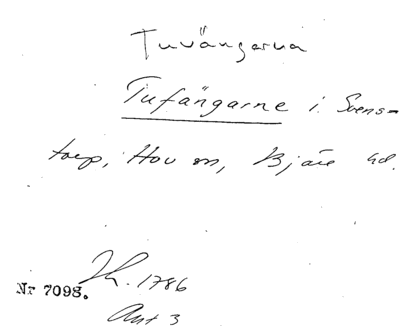 Tuvängarna
Tufängarne i Svens-
torp, Hov sn, Bjäre hd.
Nr 7098.
Sk. 1786
Akt 3